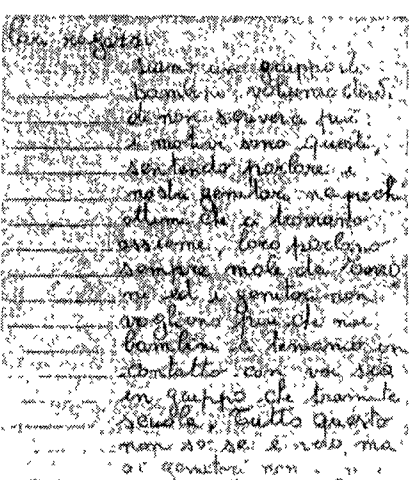 Cari ragazzi
siamo un gruppo di
bambini, voliamo chiedi
di non scriverci più
i motivi sono questi,
sentendo parlare i
nostri genitori, ne pochi
attimi che ci troviamo
assieme, loro parlano
sempre male de
ed i genitori non
vogliono più che noi
bambini ci teniamo in
contatto con voi sia
in gruppo che tramite
scuola, Tutto questo
non so se è vero ma
genitori non